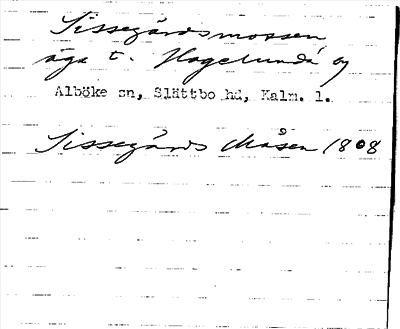 Sissegårdsmossen
äga t. Hagelunda by
Alböke sn, Slättbo hd, Kalm. l.
Sissegårds Måsen 1808